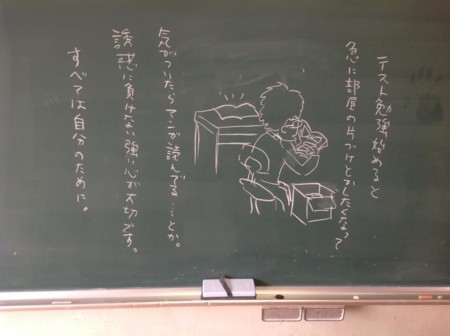 テスト勉強始めると
急に部屋の片づけとかしたくなって
気がついたらマンガ読んでる…とか。
誘惑に負けない強い心が大切です。
すべては自分のために。